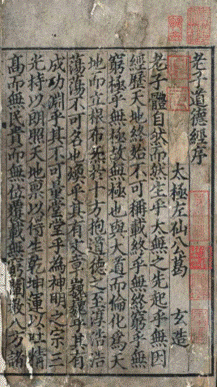 老子道德經序
太極左仙公葛　玄造
老子體自然而然生乎太無之先起乎無因
經歷天地終始不可稱載終乎無終窮乎無
窮極乎無極故無極也與大道而倫化為天
地而立根布炁於十方抱道德之至淳浩浩
蕩蕩不可名也煥乎其有文章巍巍乎其有
成功淵乎其不可量堂堂乎為神明之宗三
光持以朗照天地稟以得生乾坤運以吐精
高而無民貴而無位覆載無窮闡教八方諸